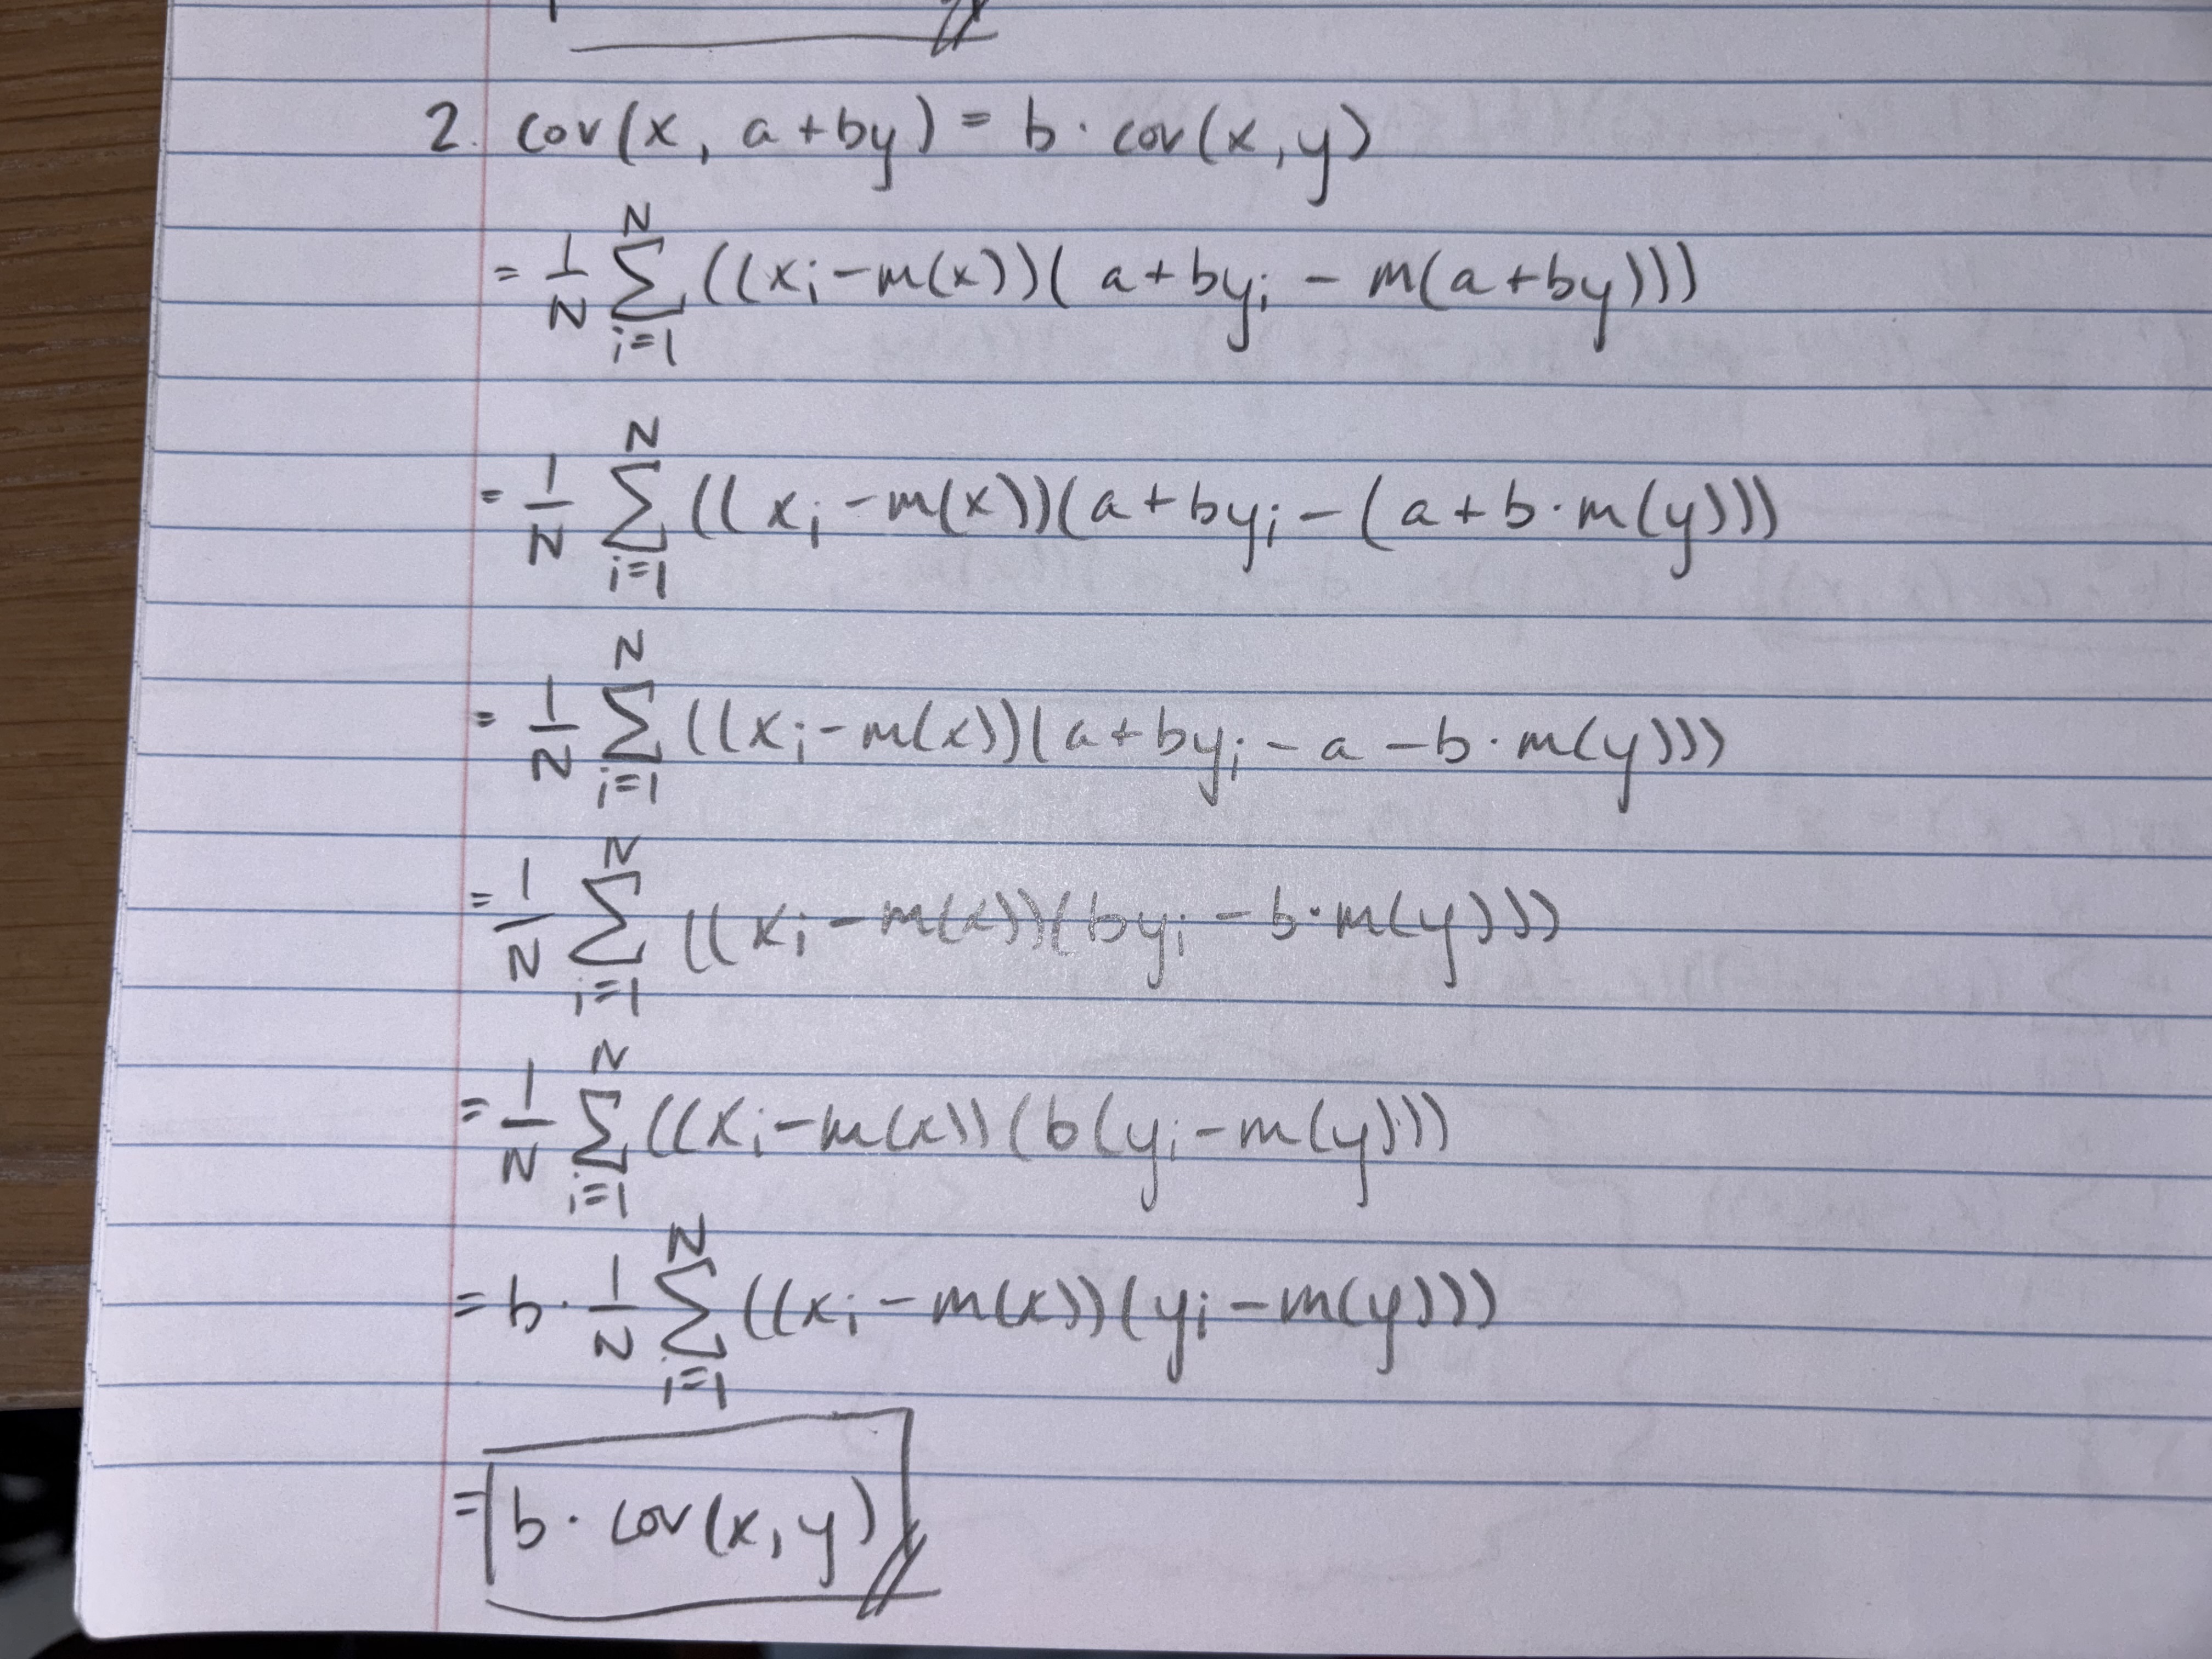 2. cov(x, a+by) = b · cov(x,y)
= 1/N ∑_{i=1}^{N} ((x_i - m(x))(a+by_i - m(a+by)))
= 1/N ∑_{i=1}^{N} ((x_i - m(x))(a+by_i - (a+b·m(y)))
= 1/N ∑_{i=1}^{N} ((x_i - m(x))(a+by_i - a - b·m(y)))
= 1/N ∑_{i=1}^{N} ((x_i - m(x))(by_i - b·m(y)))
= 1/N ∑_{i=1}^{N} ((x_i - m(x))(b(y_i - m(y)))
= b · 1/N ∑_{i=1}^{N} ((x_i - m(x))(y_i - m(y)))
= b · cov(x,y)